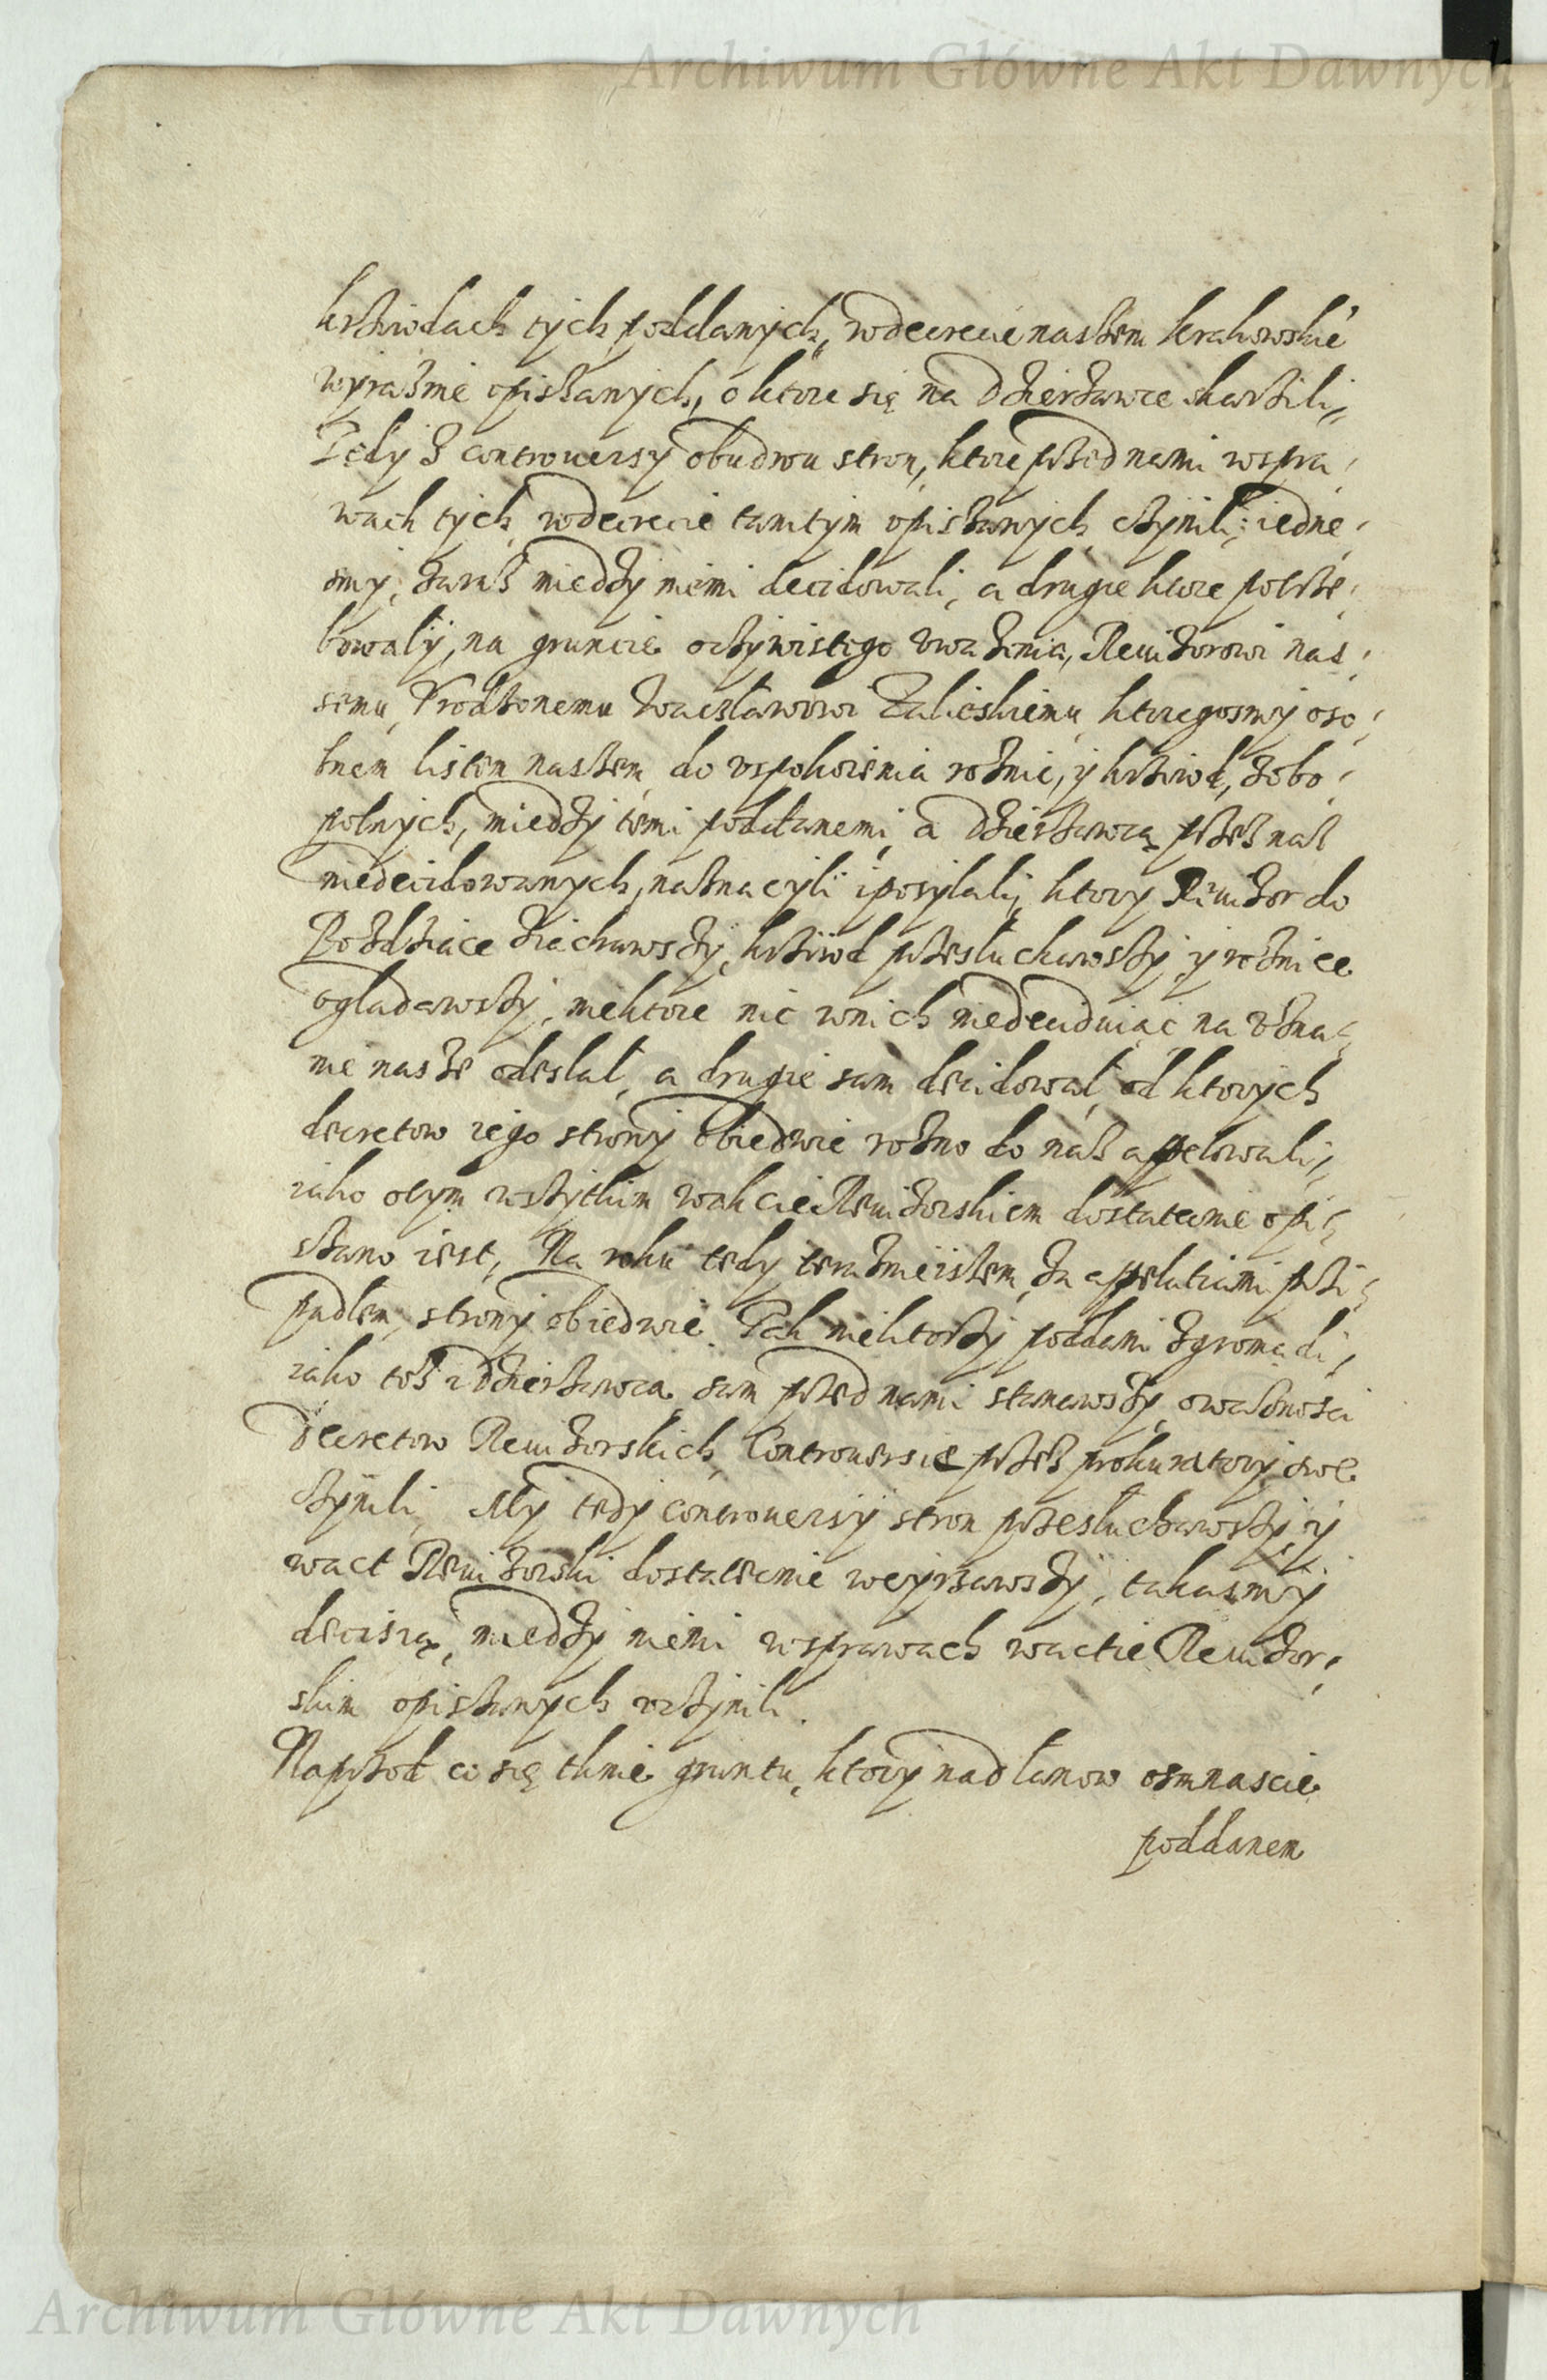 Archiwum Główne Akt Dawnych
krziwdach tych poddanych, wdecrecie naszem krakowskié
wyraznie opisanych, o ktore się na Dzierzawce skarzili,
Tedy z controuersy obudwu stron, ktore przed nami wspra,
wach tych wdecrecie tamtym opisanych czynili, iedne,
smy, zaraz miedzy niemi decidowali, a drugie ktore potrze,
bowały, na gruncie oczywistego vwazenia, Reuizorowi nas,
semu, Vrodzonemu Wacławowi Zalieskiemu, ktoregosmy oso,
bnem listem naszem, do vspokoienia roznic, y krziwd, zobo,
polnych, miedzy temi poddanemi, a Dzierzawcą przez nas
niedecidowanych, naznaczyli i posylali, ktory Reuizor do
Rozdziace ziechawszy, krziwd przesluchawszy y roznice
ogladawszy, niektore nic wnich niedeciduiąc na vzna,
nie nasze odeslał, a drugie sam decidował, od ktorych
decretow iego strony obiedwie rozno do nas appelowali,
iako otym wszytkim wakcie Reuizorskiem dostatecnie opi,
sano iest, Na roku tedy teraznieiszem, za appelatiami przi,
padłem, strony obiedwie Tak niektorzy poddani zgromadi,
iako tez i Dzierzawca, sam przed nami stanawszy, owaznosci
Decretow Reuizorskich, Controuersie przez prokuratory swe
czynili, My tedy controuersy stron przesluchawszy, y
wact Reuizorski dostatecnie weyrzawszy, takasmy
decisią, miedzy niemi wsprawach wactie Reuizor,
skim opisanych vczynili.
Naprzod co się tknie gruntu, ktory nad lanow osmnascie
poddanem
Archiwum Główne Akt Dawnych